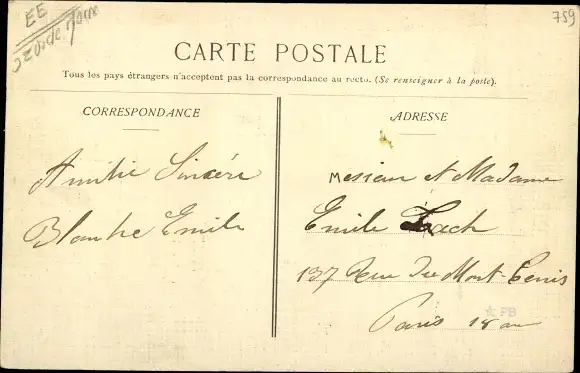 EE
759
CARTE POSTALE
Tous les pays étrangers n'acceptent pas la correspondance au recto. (Se renseigner à la poste).
CORRESPONDANCE
Amitié Sincére
Blanche Emile
ADRESSE
Messieur et Madame
Emile
137 Rue Du Mont-Cenis
Paris 18 am
FB